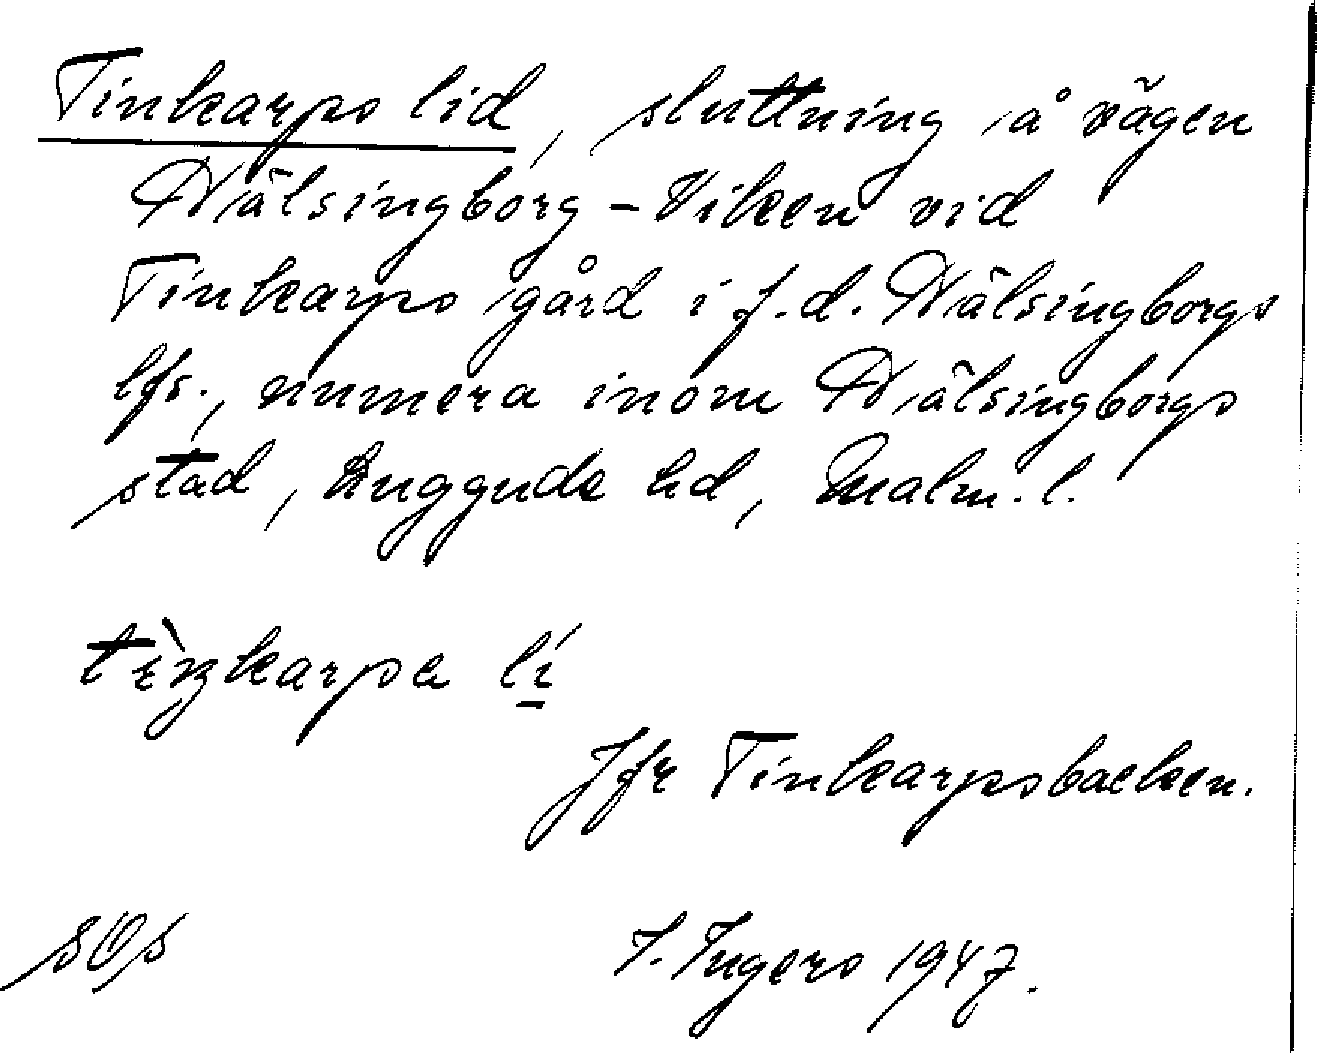 Tinkarps lid, sluttning å vägen
Hälsingborg - Viken vid
Tinkarps gård i f.d. Hälsingborgs
lfs., numera inom Hälsingborgs
stad, Luggude hd, Malm. l.
li
Jfr Tinkarpsbacken.
SOS
I. Ingers 1947.